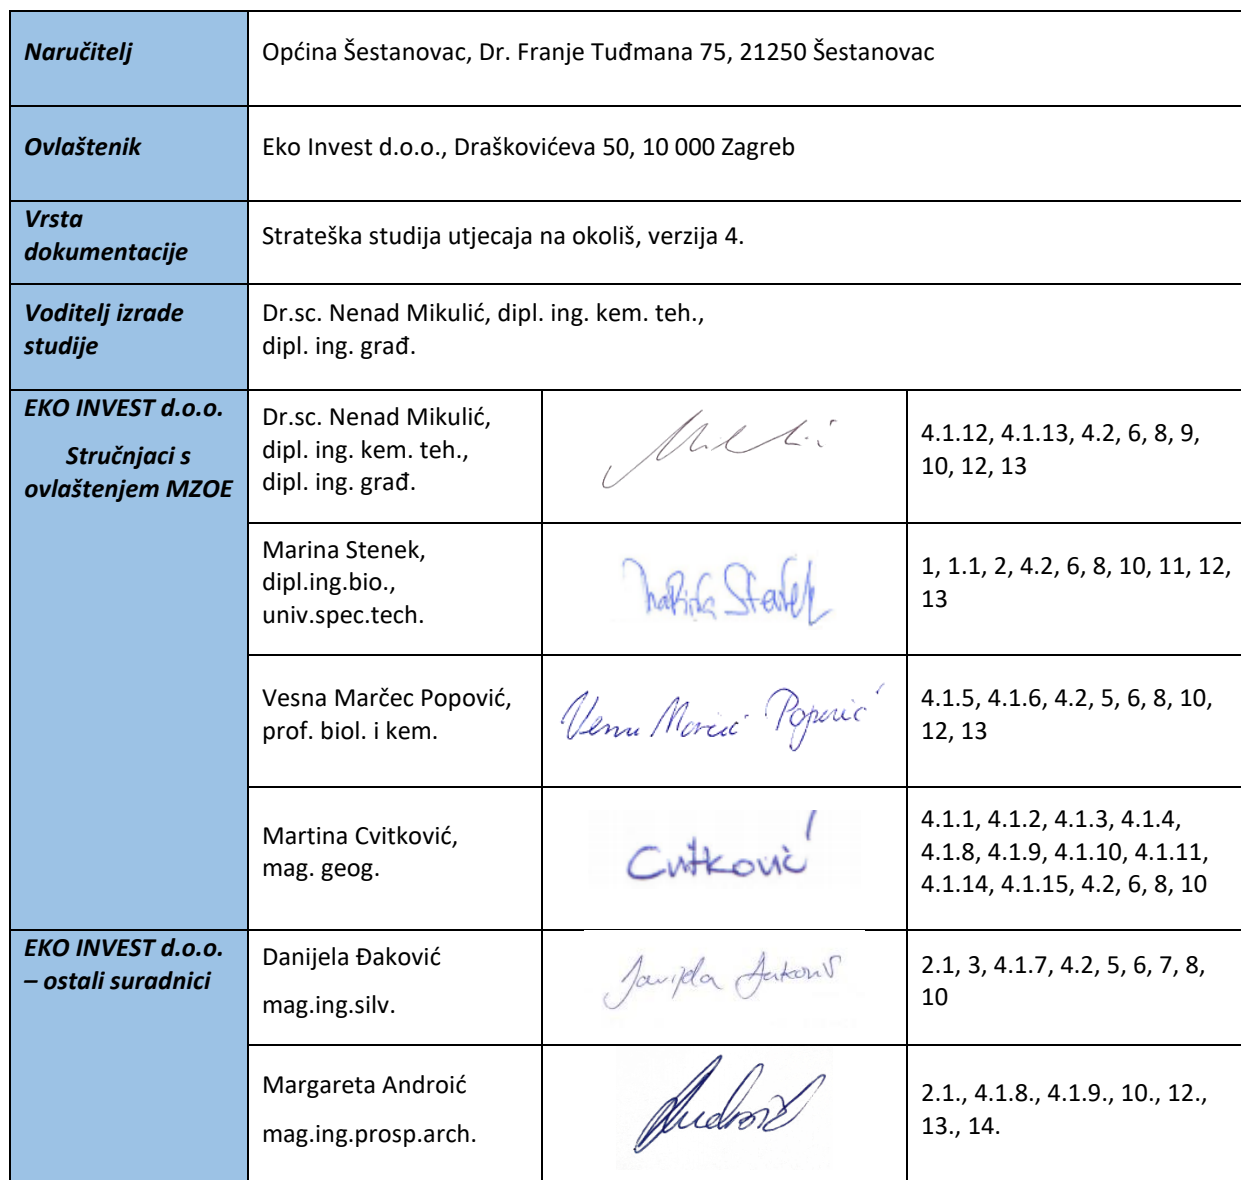 Naručitelj
Općina Šestanovac, Dr. Franje Tuđmana 75, 21250 Šestanovac
Ovlaštenik
Eko Invest d.o.o., Draškovićeva 50, 10 000 Zagreb
Vrsta
dokumentacije
Strateška studija utjecaja na okoliš, verzija 4.
Voditelj izrade
studije
Dr.sc. Nenad Mikulić, dipl. ing. kem. teh.,
dipl. ing. građ.
EKO INVEST d.o.o.
Stručnjaci s
ovlaštenjem MZOE
Dr.sc. Nenad Mikulić,
dipl. ing. kem. teh.,
dipl. ing. građ.
4.1.12, 4.1.13, 4.2, 6, 8, 9,
10, 12, 13
Marina Stenek,
dipl.ing.bio.,
univ.spec.tech.
Marina Stenek
1, 1.1, 2, 4.2, 6, 8, 10, 11, 12,
13
Vesna Marčec Popović,
prof. biol. i kem.
Vesna Marčec Popović
4.1.5, 4.1.6, 4.2, 5, 6, 8, 10,
12, 13
Martina Cvitković,
mag. geog.
Cvitković
4.1.1, 4.1.2, 4.1.3, 4.1.4,
4.1.8, 4.1.9, 4.1.10, 4.1.11,
4.1.14, 4.1.15, 4.2, 6, 8, 10
EKO INVEST d.o.o.
– ostali suradnici
Danijela Đaković
mag.ing.silv.
Danijela Đaković
2.1, 3, 4.1.7, 4.2, 5, 6, 7, 8,
10
Margareta Androić
mag.ing.prosp.arch.
Androić
2.1., 4.1.8., 4.1.9., 10., 12.,
13., 14.